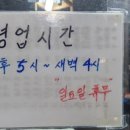 영업시간
후 5시~새벽 4시
"일요일 휴무"